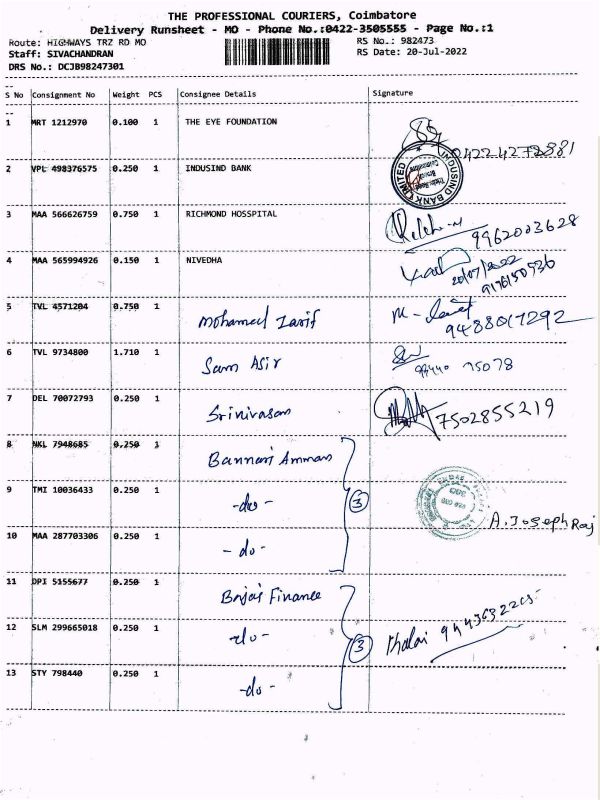 THE PROFESSIONAL COURIERS, Coimbatore
Delivery Runsheet - MO - Phone No.:0422-3505555 - Page No.:1
Route: HIGHWAYS TRZ RD MO
RS No.: 982473
Staff: SIVACHANDRAN
RS Date: 20-Jul-2022
DRS No.: DCJB98247301
S No Consignment No Weight PCS Consignee Details Signature
1 MRT 1212970 0.100 1 THE EYE FOUNDATION
04224272881
2 VPL 498376575 0.250 1 INDUSIND BANK
INDUSIND BANK LIMITED
3 MAA 566626759 0.750 1 RICHMOND HOSSPITAL
9962003628
4 MAA 565994926 0.150 1 NIVEDHA
20/07/2022
9176150536
5 TVL 4571204 0.750 1 Mohamed Zarif
9488017292
6 TVL 9734800 1.710 1 Sam Asir
75078
7 DEL 70072793 0.250 1 Srinivasan
7502855219
8 NKL 7948685 0.250 1 Bannari Amman
9 TMI 10036433 0.250 1 -do- 3
A. Joseph Raj
10 MAA 287703306 0.250 1 -do-
11 DPI 5155677 0.250 1 Bajaj Finance
12 SLM 299665018 0.250 1 -do- 3
Kalai
13 STY 798440 0.250 1 -do-